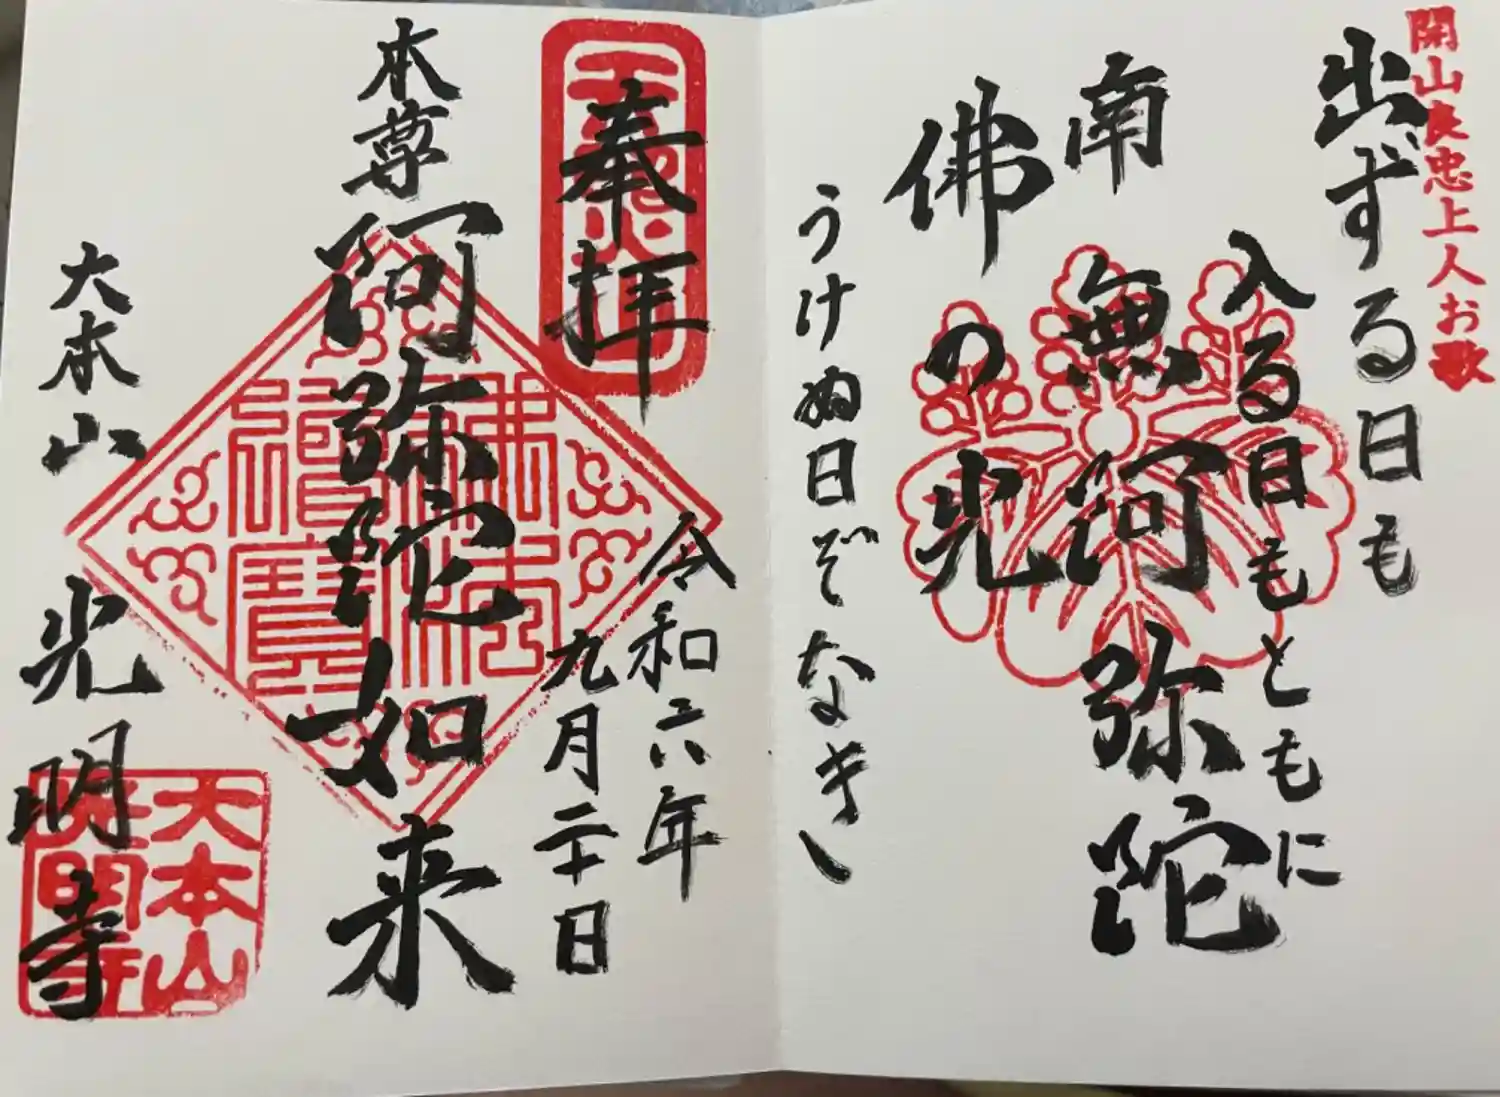 開山良忠上人お歌
出ずる日も
入る日もともに
南無阿弥陀
佛の光
うけぬ日ぞなき
奉拝
令和六年
九月二十日
本尊阿弥陀如来
佛法
僧寳
大本山光明寺
大本山
光明寺